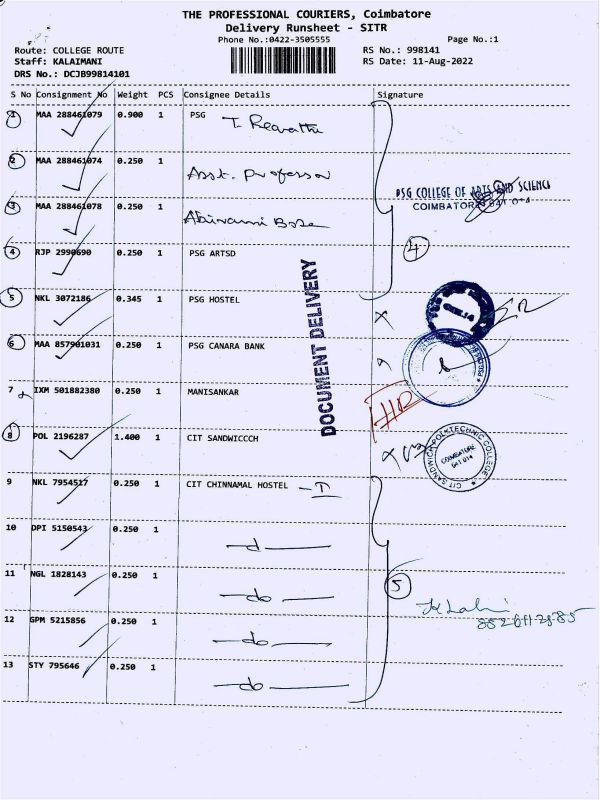 THE PROFESSIONAL COURIERS, Coimbatore
Delivery Runsheet - SITR
Phone No.:0422-3505555 Page No.:1
Route: COLLEGE ROUTE RS No.: 998141
Staff: KALAIMANI RS Date: 11-Aug-2022
DRS No.: DCJB99814101
S No Consignment No Weight PCS Consignee Details Signature
1 MAA 288461079 0.900 1 PSG T. Revathi
2 MAA 288461074 0.250 1 Asst. Professor
3 MAA 288461078 0.250 1 Abirami
PSG COLLEGE OF ARTS AND SCIENCE
COIMBATORE 641 014
4 RJP 2990690 0.250 1 PSG ARTSD 4
5 NKL 3072186 0.345 1 PSG HOSTEL
6 MAA 857901031 0.250 1 PSG CANARA BANK
DOCUMENT DELIVERY
7 IXM 501882380 0.250 1 MANISANKAR
8 POL 2196287 1.400 1 CIT SANDWICCCH
CIT SANDWICH POLYTECHNIC COLLEGE
COIMBATORE
641 014
9 NKL 7954517 0.250 1 CIT CHINNAMAL HOSTEL
10 DPI 5150543 0.250 1 do
11 NGL 1828143 0.250 1 do
5
12 GPM 5215856 0.250 1 do
13 STY 795646 0.250 1 do